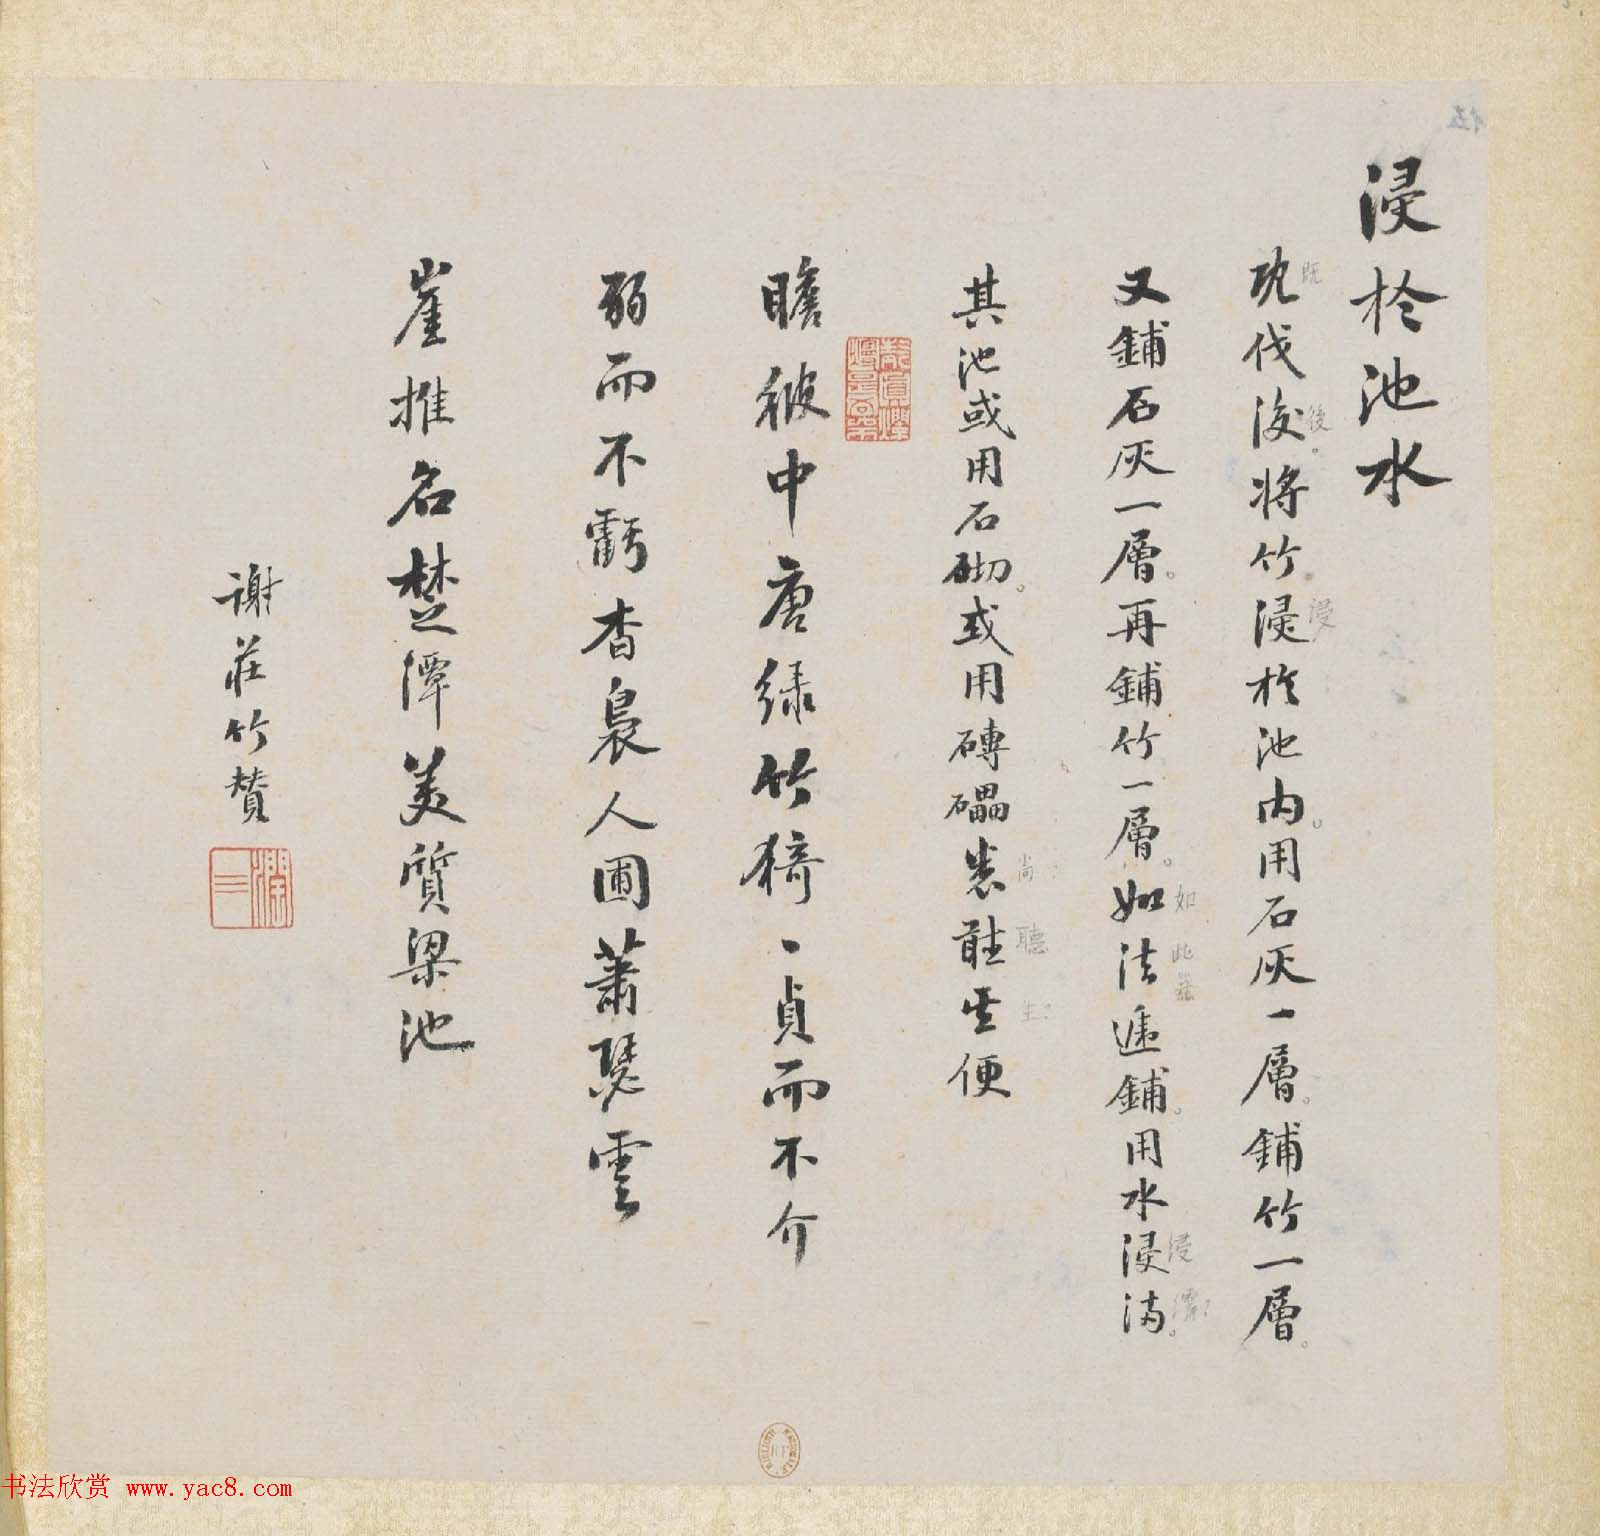 浸於池水
既伐後將竹浸於池內用石灰一層鋪竹一層
又鋪石灰一層再鋪竹一層如法遞鋪用水浸满
其池或用石砌或用磚礧悉聽其便
瞻彼中唐绿竹猗丶貞而不介
弱而不虧杳裊人圃蕭瑟雲
崖推名楚潭美質梁池
謝莊竹贊
既
後
浸
如
此
浸
尚
聽
BIBLIOTH NATIONALE
RF
书法欣赏 www.yac8.com